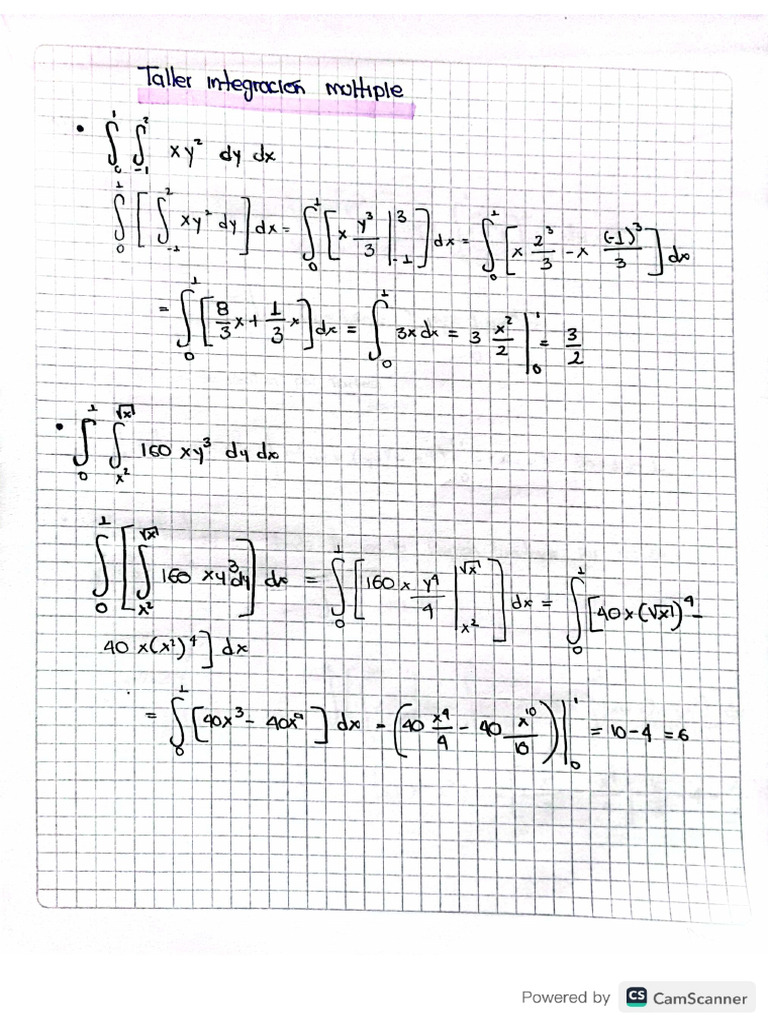 Taller integración multiple
• ∫₀¹ ∫₋₁² xy² dy dx
∫₀¹ [ ∫₋₁² xy² dy ] dx = ∫₀¹ [ x y³/3 |₋₁³ ] dx = ∫₀¹ [ x 2³/3 - x (-1)³/3 ] dx
= ∫₀¹ [ 8/3 x + 1/3 x ] dx = ∫₀¹ 3x dx = 3 x²/2 |₀¹ = 3/2
• ∫₀¹ ∫_{x²}^{√x} 160 xy³ dy dx
∫₀¹ [ ∫_{x²}^{√x} 160 xy³ dy ] dx = ∫₀¹ [ 160 x y⁴/4 |_{x²}^{√x} ] dx = ∫₀¹ [ 40x(√x)⁴ -
40 x(x²)⁴ ] dx
= ∫₀¹ [ 40x³ - 40x⁹ ] dx - ( 40 x⁴/4 - 40 x¹⁰/10 ) |₀¹ = 10 - 4 = 6
Powered by CS CamScanner